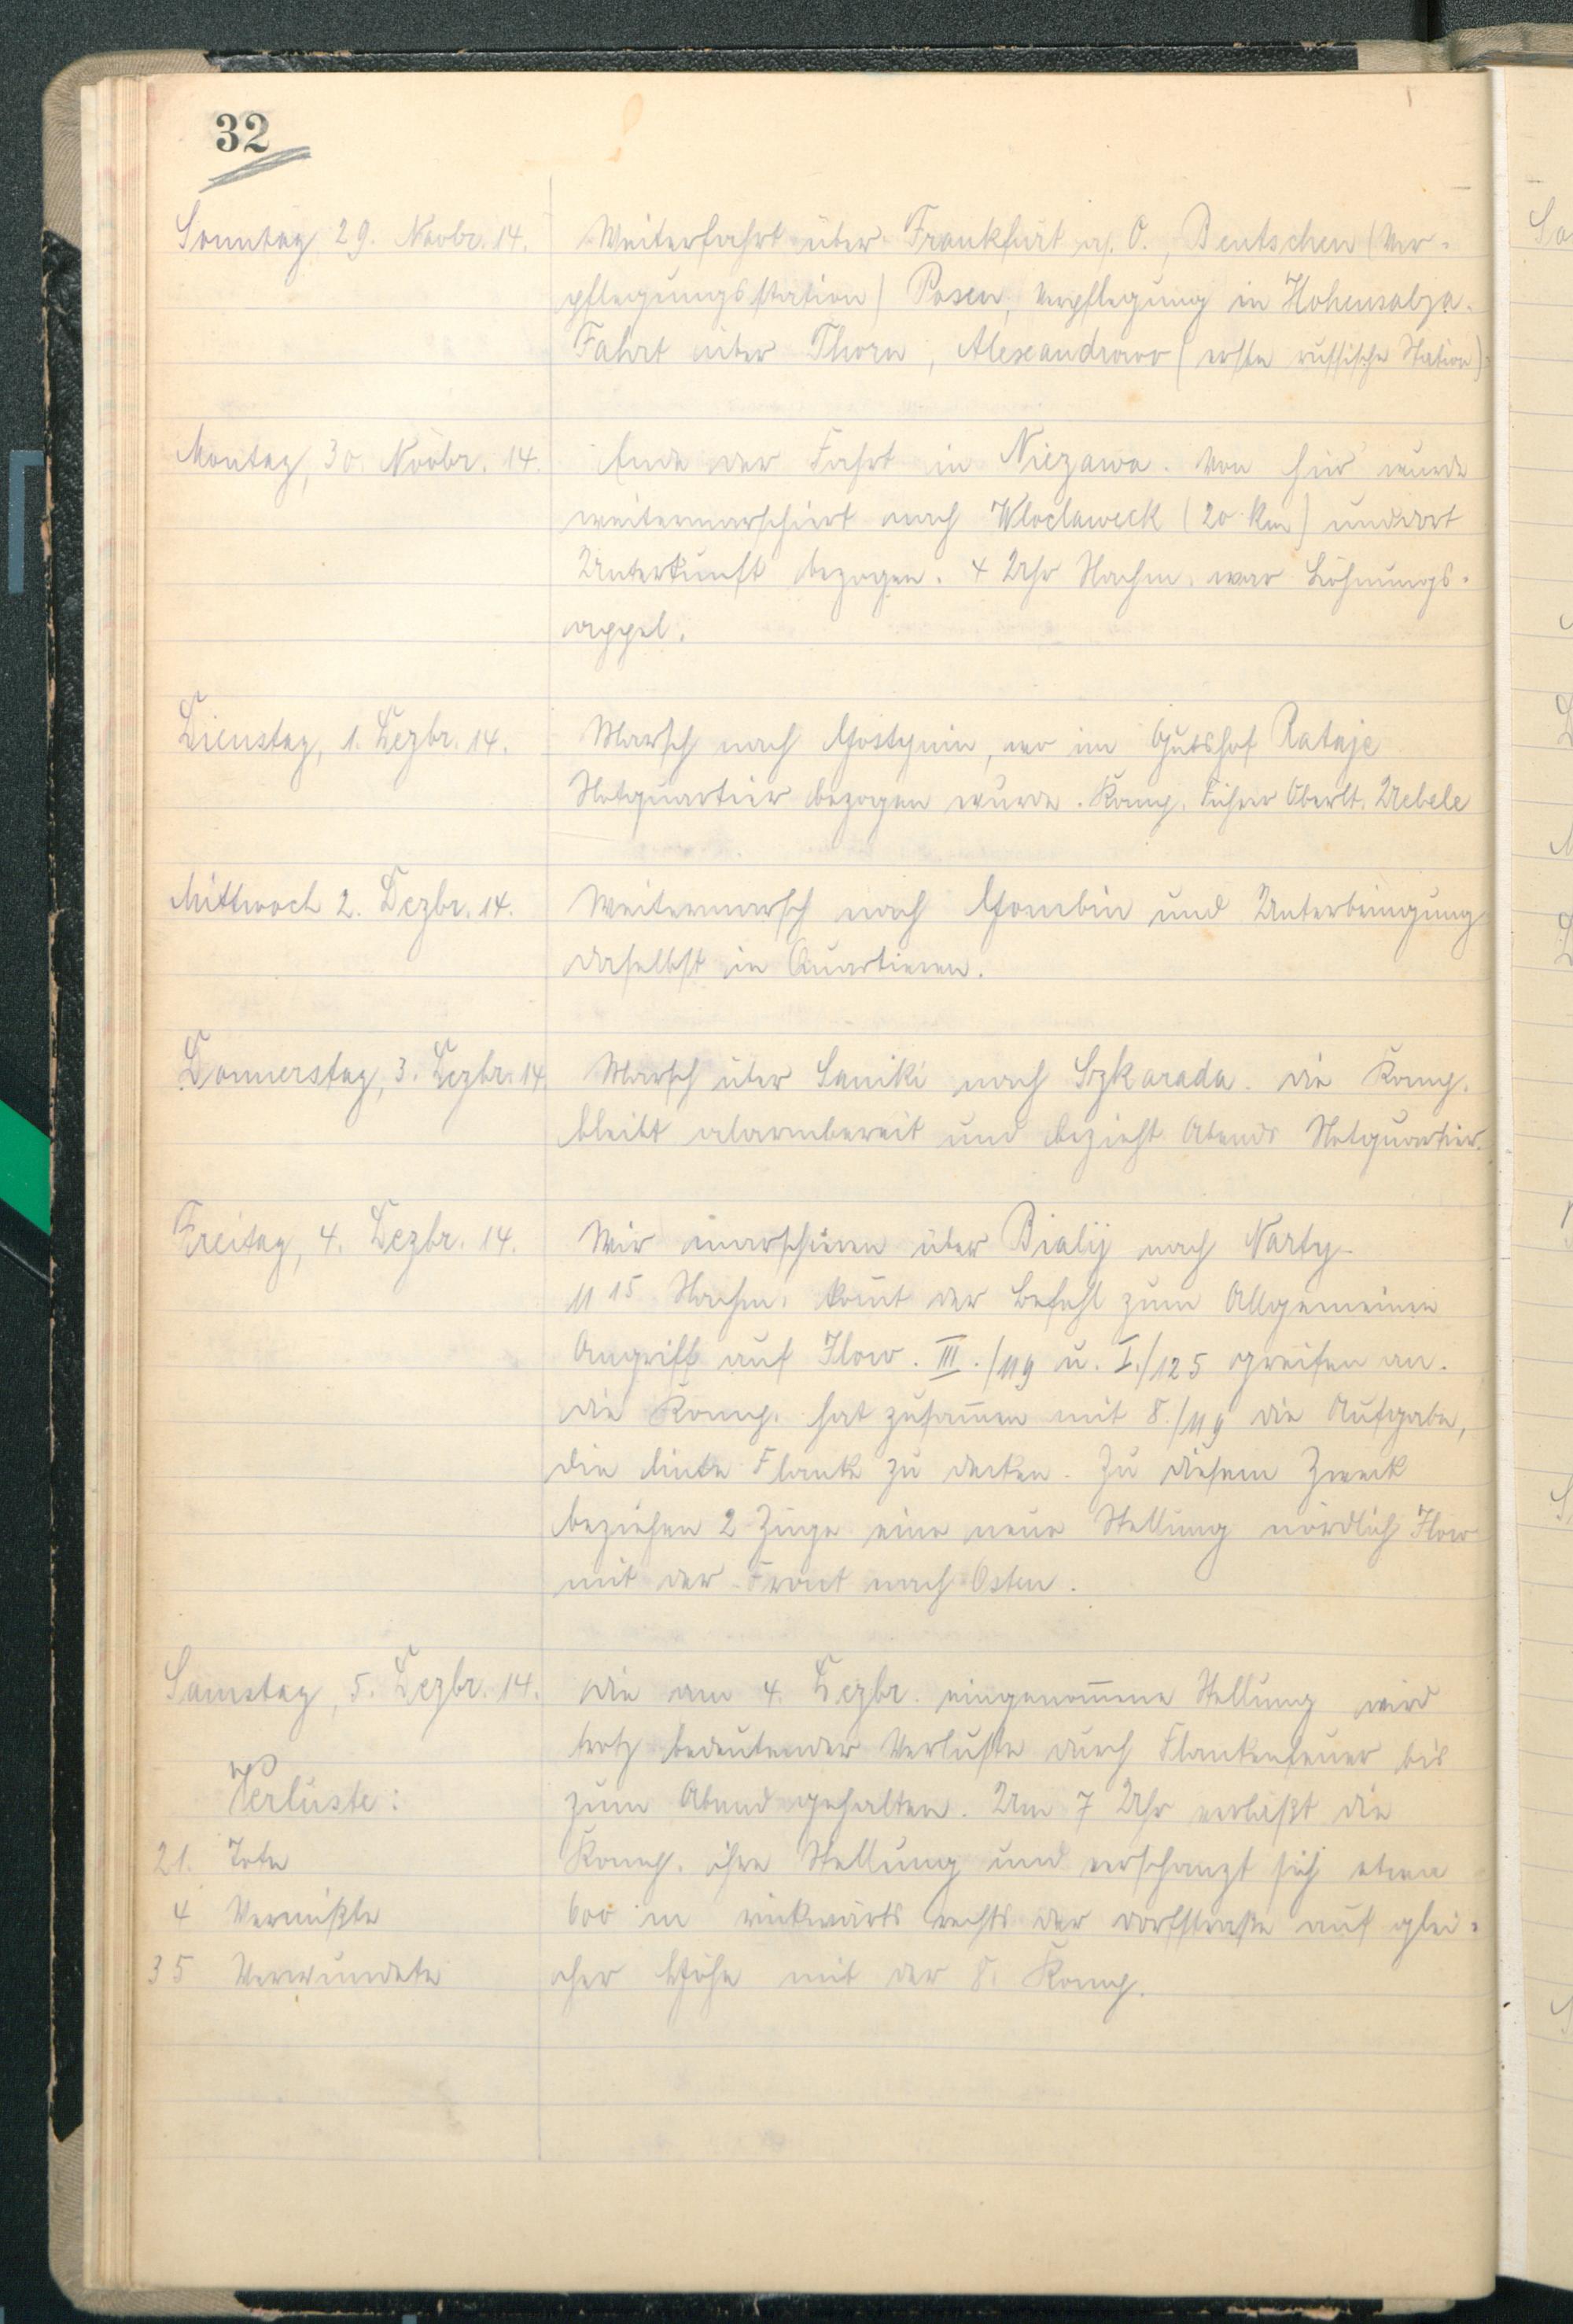 32
Sonntag 29. Novbr. 14.
Weiterfahrt über Frankfurt a/. O., Bentschen (Ver-
pflegungsstation) Posen, Verpflegung in Hohensalza.
Fahrt über Thorn, Alexandrowo (erste russische Station)
Montag, 30. Novbr. 14.
Ende der Fahrt in Niezawa. Von hier wurde
weitermarschiert nach Wloclaweck (20 Km) und dort
Unterkunft bezogen. 4 Uhr Nachm. war Löhnungs-
appel.
Dienstag, 1. Dezbr. 14.
Marsch nach Gostynin, wo im Gutshof Rataje
Notquartier bezogen wurde. Komp. Führer Oberlt. Uebele
Mittwoch 2. Dezbr. 14.
Weitermarsch nach Gombin und Unterbringung
daselbst in Quartieren.
Donnerstag, 3. Dezbr. 14
Marsch über Saniki nach Szkarada. Die Komp.
bleibt alarmbereit und bezieht Abends Notquartier.
Freitag, 4. Dezbr. 14.
Wir marschieren über Bialy nach Narty.
11 15 Nachm. komt der Befehl zum Allgemeinen
Angriff auf Ilow. III./119 u. I./125 greifen an.
Die Komp. hat zusamen mit 8./119 die Aufgabe,
die linke Flanke zu decken. Zu diesem Zweck
beziehen 2 Züge eine neue Stellung nördlich Ilow
mit der Front nach Osten.
Samstag, 5. Dezbr. 14.
Die am 4. Dezbr. eingenomene Stellung wird
trotz bedeutender Verluste durch Flankenfeuer bis
zum Abend gehalten. Um 7 Uhr verläßt die
Komp. ihre Stellung und verschanzt sich etwa
600 m rückwärts rechts der Dorfstraße auf glei-
cher Höhe mit der 8. Komp.
Verluste:
21. Tote
4 Vermißte
35 Verwundete